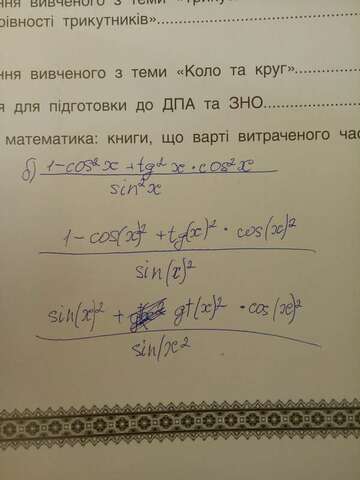 ння вивченого з теми «Трику
рівності трикутників»
ння вивченого з теми «Коло та круг»
я для підготовки до ДПА та ЗНО
математика: книги, що варті витраченого час
б) 1-cos²x+tg²x·cos²x
sin²x
1-cos(x)²+tg(x)²·cos(x)²
sin(x)²
sin(x)²+ gt(x)²·cos(x)²
sin(x²